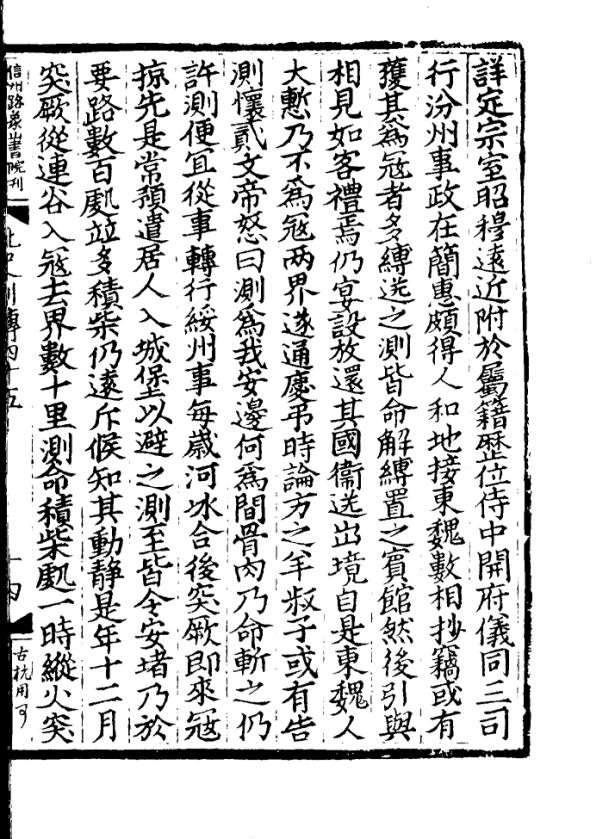 詳定宗室昭穆遠近附於屬籍歷位侍中開府儀同三司
行汾州事政在簡惠頗得人和地接東魏數相抄竊或有
獲其為寇者多縛送之測皆命解縛置之賓館然後引與
相見如客禮焉仍宴設放還其國衞送出境自是東魏人
大慙乃不為寇兩界遂通慶弔時論方之羊叔子或有告
測懷貳文帝怒曰測為我安邊何為間骨肉乃命斬之仍
許測便宜從事轉行綏州事每歲河冰合後突厥即來寇
掠先是常預遣居人入城堡以避之測至皆令安堵乃於
要路數百處並多積柴仍遠斥候知其動靜是年十二月
突厥從連谷入寇去界數十里測命積柴處一時縱火突
信州路象山書院刊
北史列傳四十五
十四
古杭用可